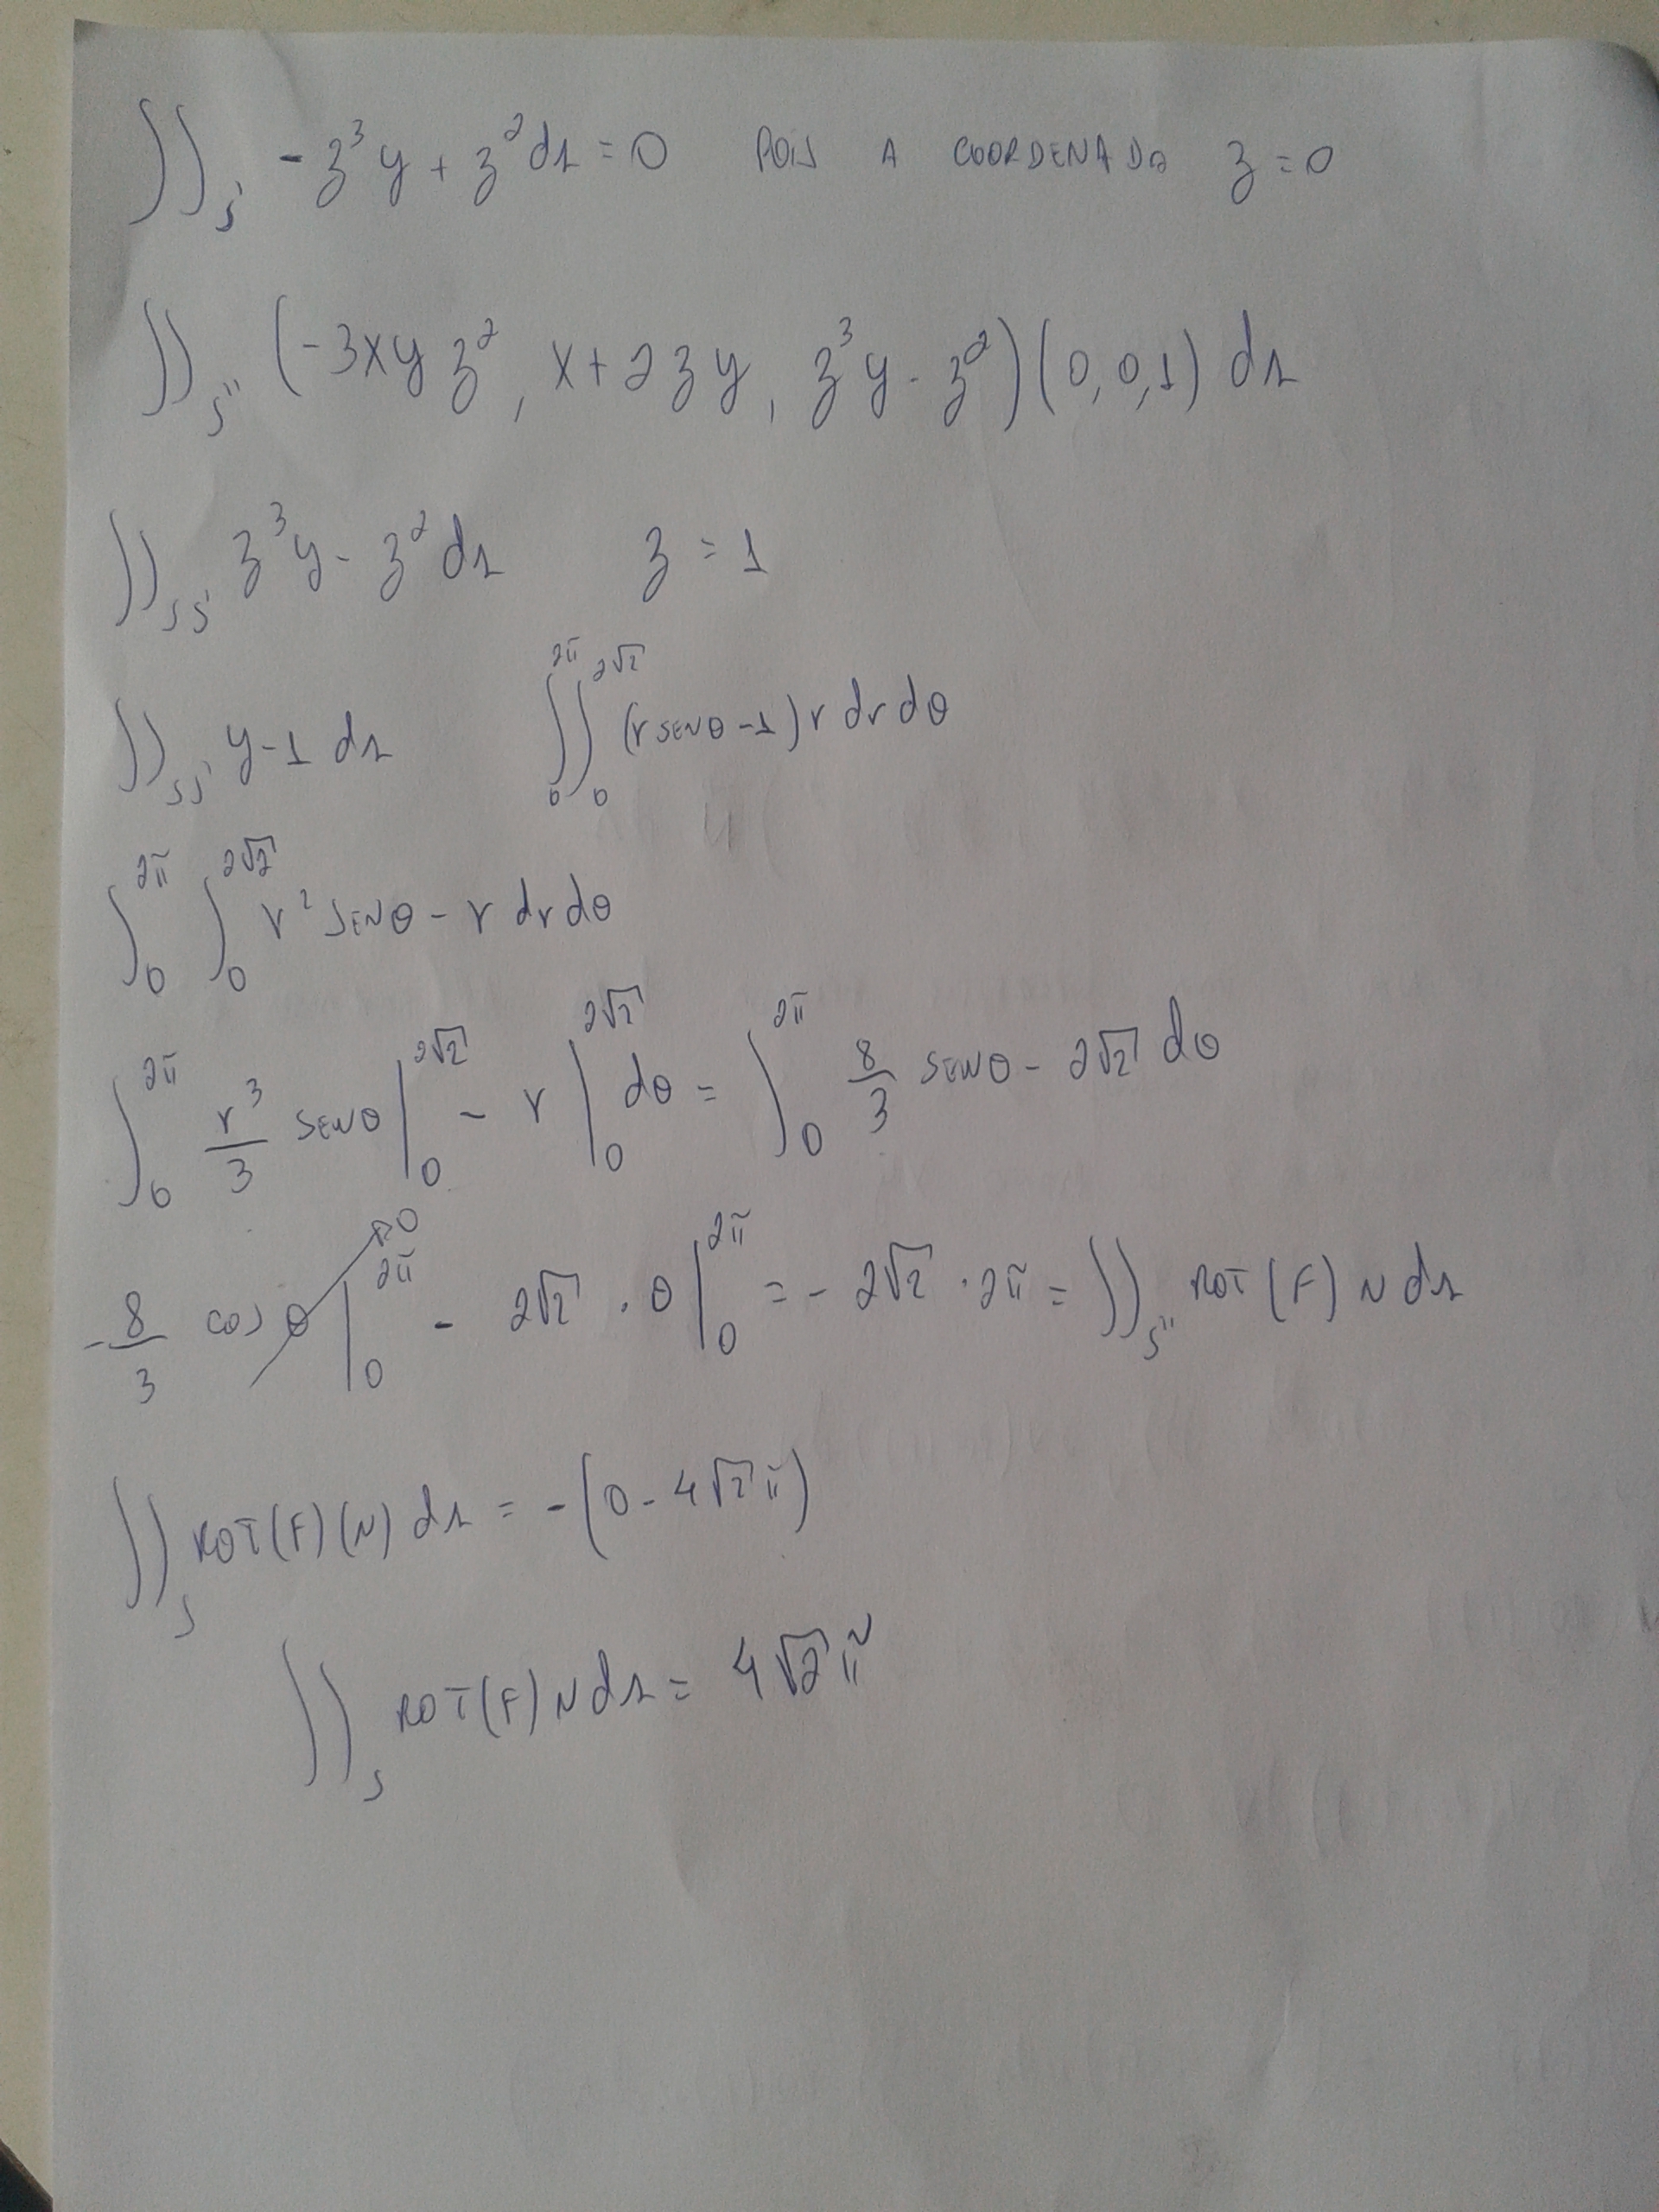 ∬_S' -z³y + z² ds = 0 POIS A COORDENADA z = 0
∬_S'' (-3xyz², x + 2zy, z³y - z²)(0,0,1) ds
∬_SS' z³y - z² ds z = 1
∬_SS' y - 1 ds ∫₀^2π ∫₀^2√2 (r SENθ - 1) r dr dθ
∫₀^2π ∫₀^2√2 r² SENθ - r dr dθ
∫₀^2π r³/3 SENθ |₀^2√2 - r |₀^2√2 dθ = ∫₀^2π 8/3 SENθ - 2√2 dθ
-8/3 cos θ |₀^2π → 0 - 2√2 · θ |₀^2π = -2√2 · 2π = ∬_S'' ROT(F) N ds
∬_S ROT(F)(N) ds = -(0 - 4√2 π)
∬_S ROT(F) N ds = 4√2 π